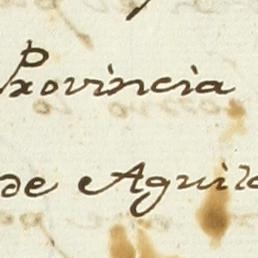 Provincia
de Aguila